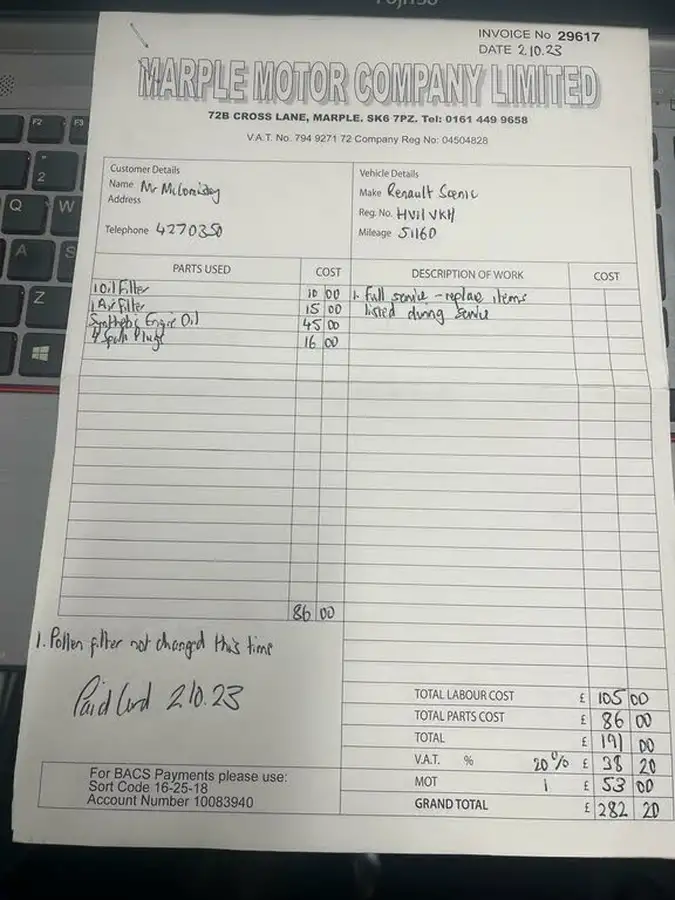 INVOICE No 29617
DATE 2.10.23
MARPLE MOTOR COMPANY LIMITED
72B CROSS LANE, MARPLE. SK6 7PZ. Tel: 0161 449 9658
V.A.T. No. 794 9271 72 Company Reg No: 04504828
Customer Details
Name Mr
Address
Telephone 4270350
Vehicle Details
Make Renault Scenic
Reg. No. HV11 VKH
Mileage 51160
PARTS USED COST DESCRIPTION OF WORK COST
1 Oil Filter 10 00 1. Full service - replace items
1 Air Filter 15 00 listed during service
Synthetic Engine Oil 45 00
4 Spark Plugs 16 00
86 00
1. Pollen filter not changed this time
Paid Card 2.10.23
TOTAL LABOUR COST £ 105 00
TOTAL PARTS COST £ 86 00
TOTAL £ 191 00
V.A.T. % 20% £ 38 20
MOT 1 £ 53 00
GRAND TOTAL £ 282 20
For BACS Payments please use:
Sort Code 16-25-18
Account Number 10083940
F2
F3
2
Q
W
A
S
Z